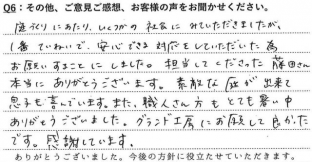 Q6：その他、ご意見ご感想、お客様の声をお聞かせください。
庭づくりにあたり、いくつかの社会にみていただきましたが、
1番ていねいで、安心できる対応をしていただいた為
お願いすることにしました。担当してくださった藤田さん
本当にありがとうございます。素敵な庭が出来て
息子も喜んでいます。また、職人さん方もとても暑い中
ありがとうございました。グランド工房にお願して良かった
です。感謝しています。
ありがとうございました。今後の方針に役立たせていただきます。